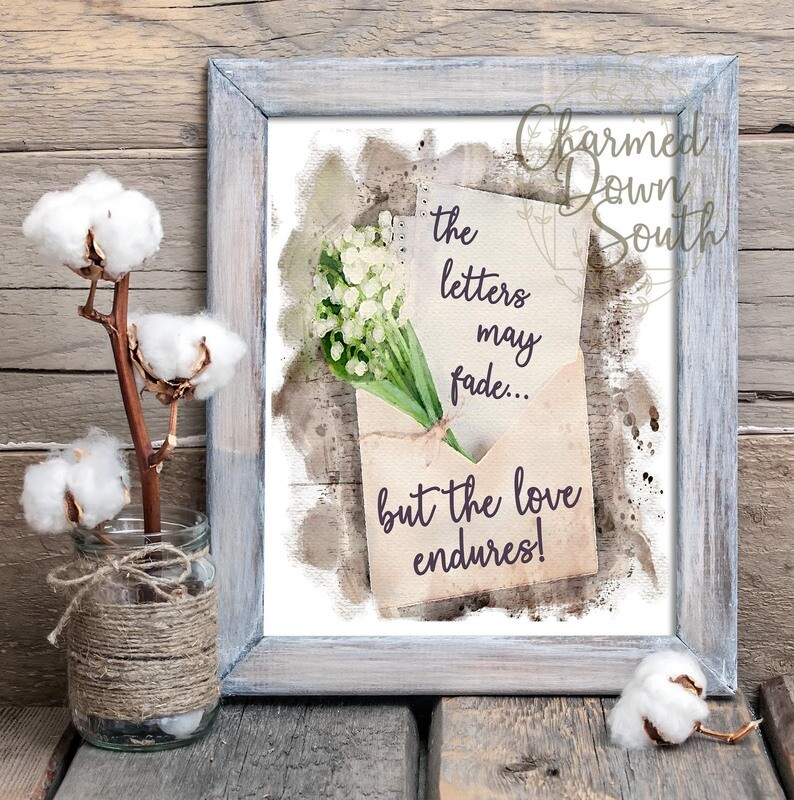 Charmed
Down
South
the
letters
may
fade...
but the love
endures!